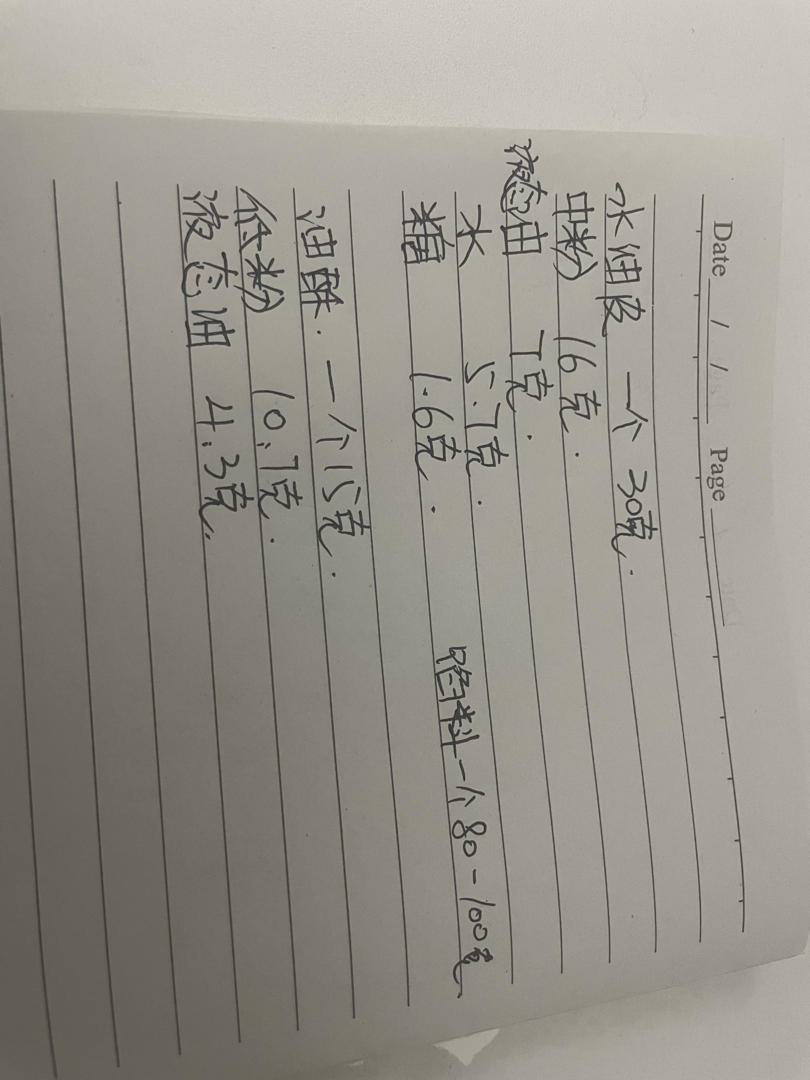 Date / / Page
水油皮 一个 30克.
中粉 16克.
液态油 7克.
水 5.7克.
糖 1.6克.
馅料一个80-100克
油酥. 一个15克.
低粉 10.7克.
液态油 4.3克.